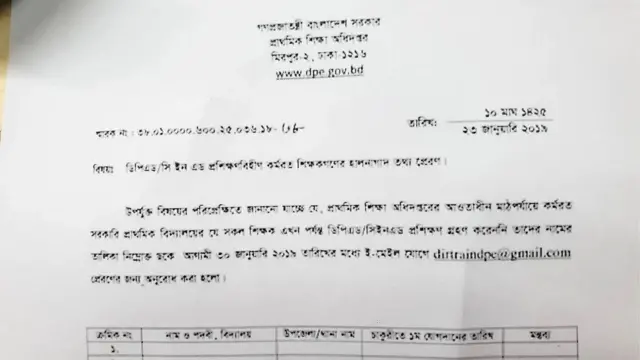 গণপ্রজাতন্ত্রী বাংলাদেশ সরকার
প্রাথমিক শিক্ষা অধিদপ্তর
মিরপুর-২, ঢাকা-১২১৬
www.dpe.gov.bd
১০ মাঘ ১৪২৫
স্মারক নং : ৩৮.০১.০০০০.৬০০.২৫.০৩৬.১৮- তারিখ:
২৩ জানুয়ারি ২০১৯
বিষয়: ডিপিএড/সি ইন এড প্রশিক্ষণবিহীণ কর্মরত শিক্ষকগণের হালনাগাদ তথ্য প্রেরণ।
উপর্যুক্ত বিষয়ের পরিপ্রেক্ষিতে জানানো যাচ্ছে যে, প্রাথমিক শিক্ষা অধিদপ্তরের আওতাধীন মাঠপর্যায়ে কর্মরত
সরকারি প্রাথমিক বিদ্যালয়ের যে সকল শিক্ষক এখন পর্যন্ত ডিপিএড/সিইনএড প্রশিক্ষণ গ্রহণ করেননি তাদের নামের
তালিকা নিম্নোক্ত ছকে আগামী ৩০ জানুয়ারি ২০১৯ তারিখের মধ্যে ই-মেইল যোগে dirtraindpe@gmail.com
প্রেরণের জন্য অনুরোধ করা হলো।
ক্রমিক নং নাম ও পদবী, বিদ্যালয় উপজেলা/থানা নাম চাকুরীতে ১ম যোগদানের তারিখ মন্তব্য
১.